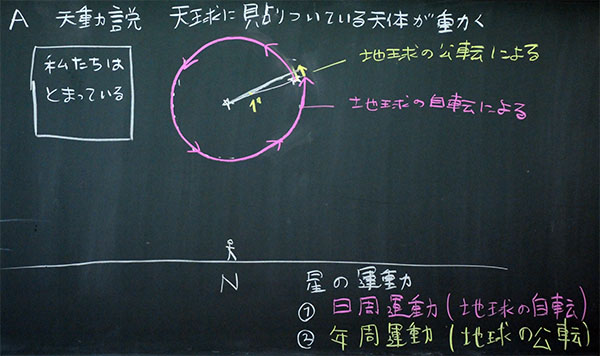 A 天動説 天球に見占りついている天体が動く
私たちは
とまっている
地球の公転による
1°
地球の自転による
N
星の運動
① 日周運動(地球の自転)
② 年周運動(地球の公転)